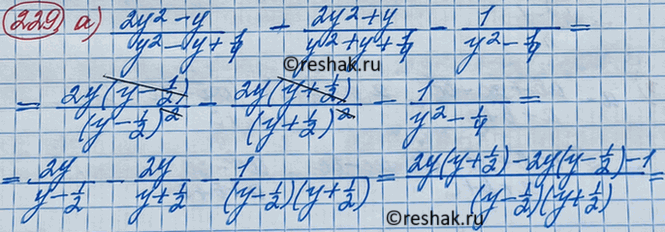 229. а) (2y² - y)/(y² - y + 1/4) - (2y² + y)/(y² + y + 1/4) - 1/(y² - 1/4) =
©reshak.ru
= 2y(y - 1/2)/(y - 1/2)² - 2y(y + 1/2)/(y + 1/2)² - 1/(y² - 1/4) =
= 2y/(y - 1/2) - 2y/(y + 1/2) - 1/((y - 1/2)(y + 1/2)) = (2y(y + 1/2) - 2y(y - 1/2) - 1)/((y - 1/2)(y + 1/2)) =
©reshak.ru